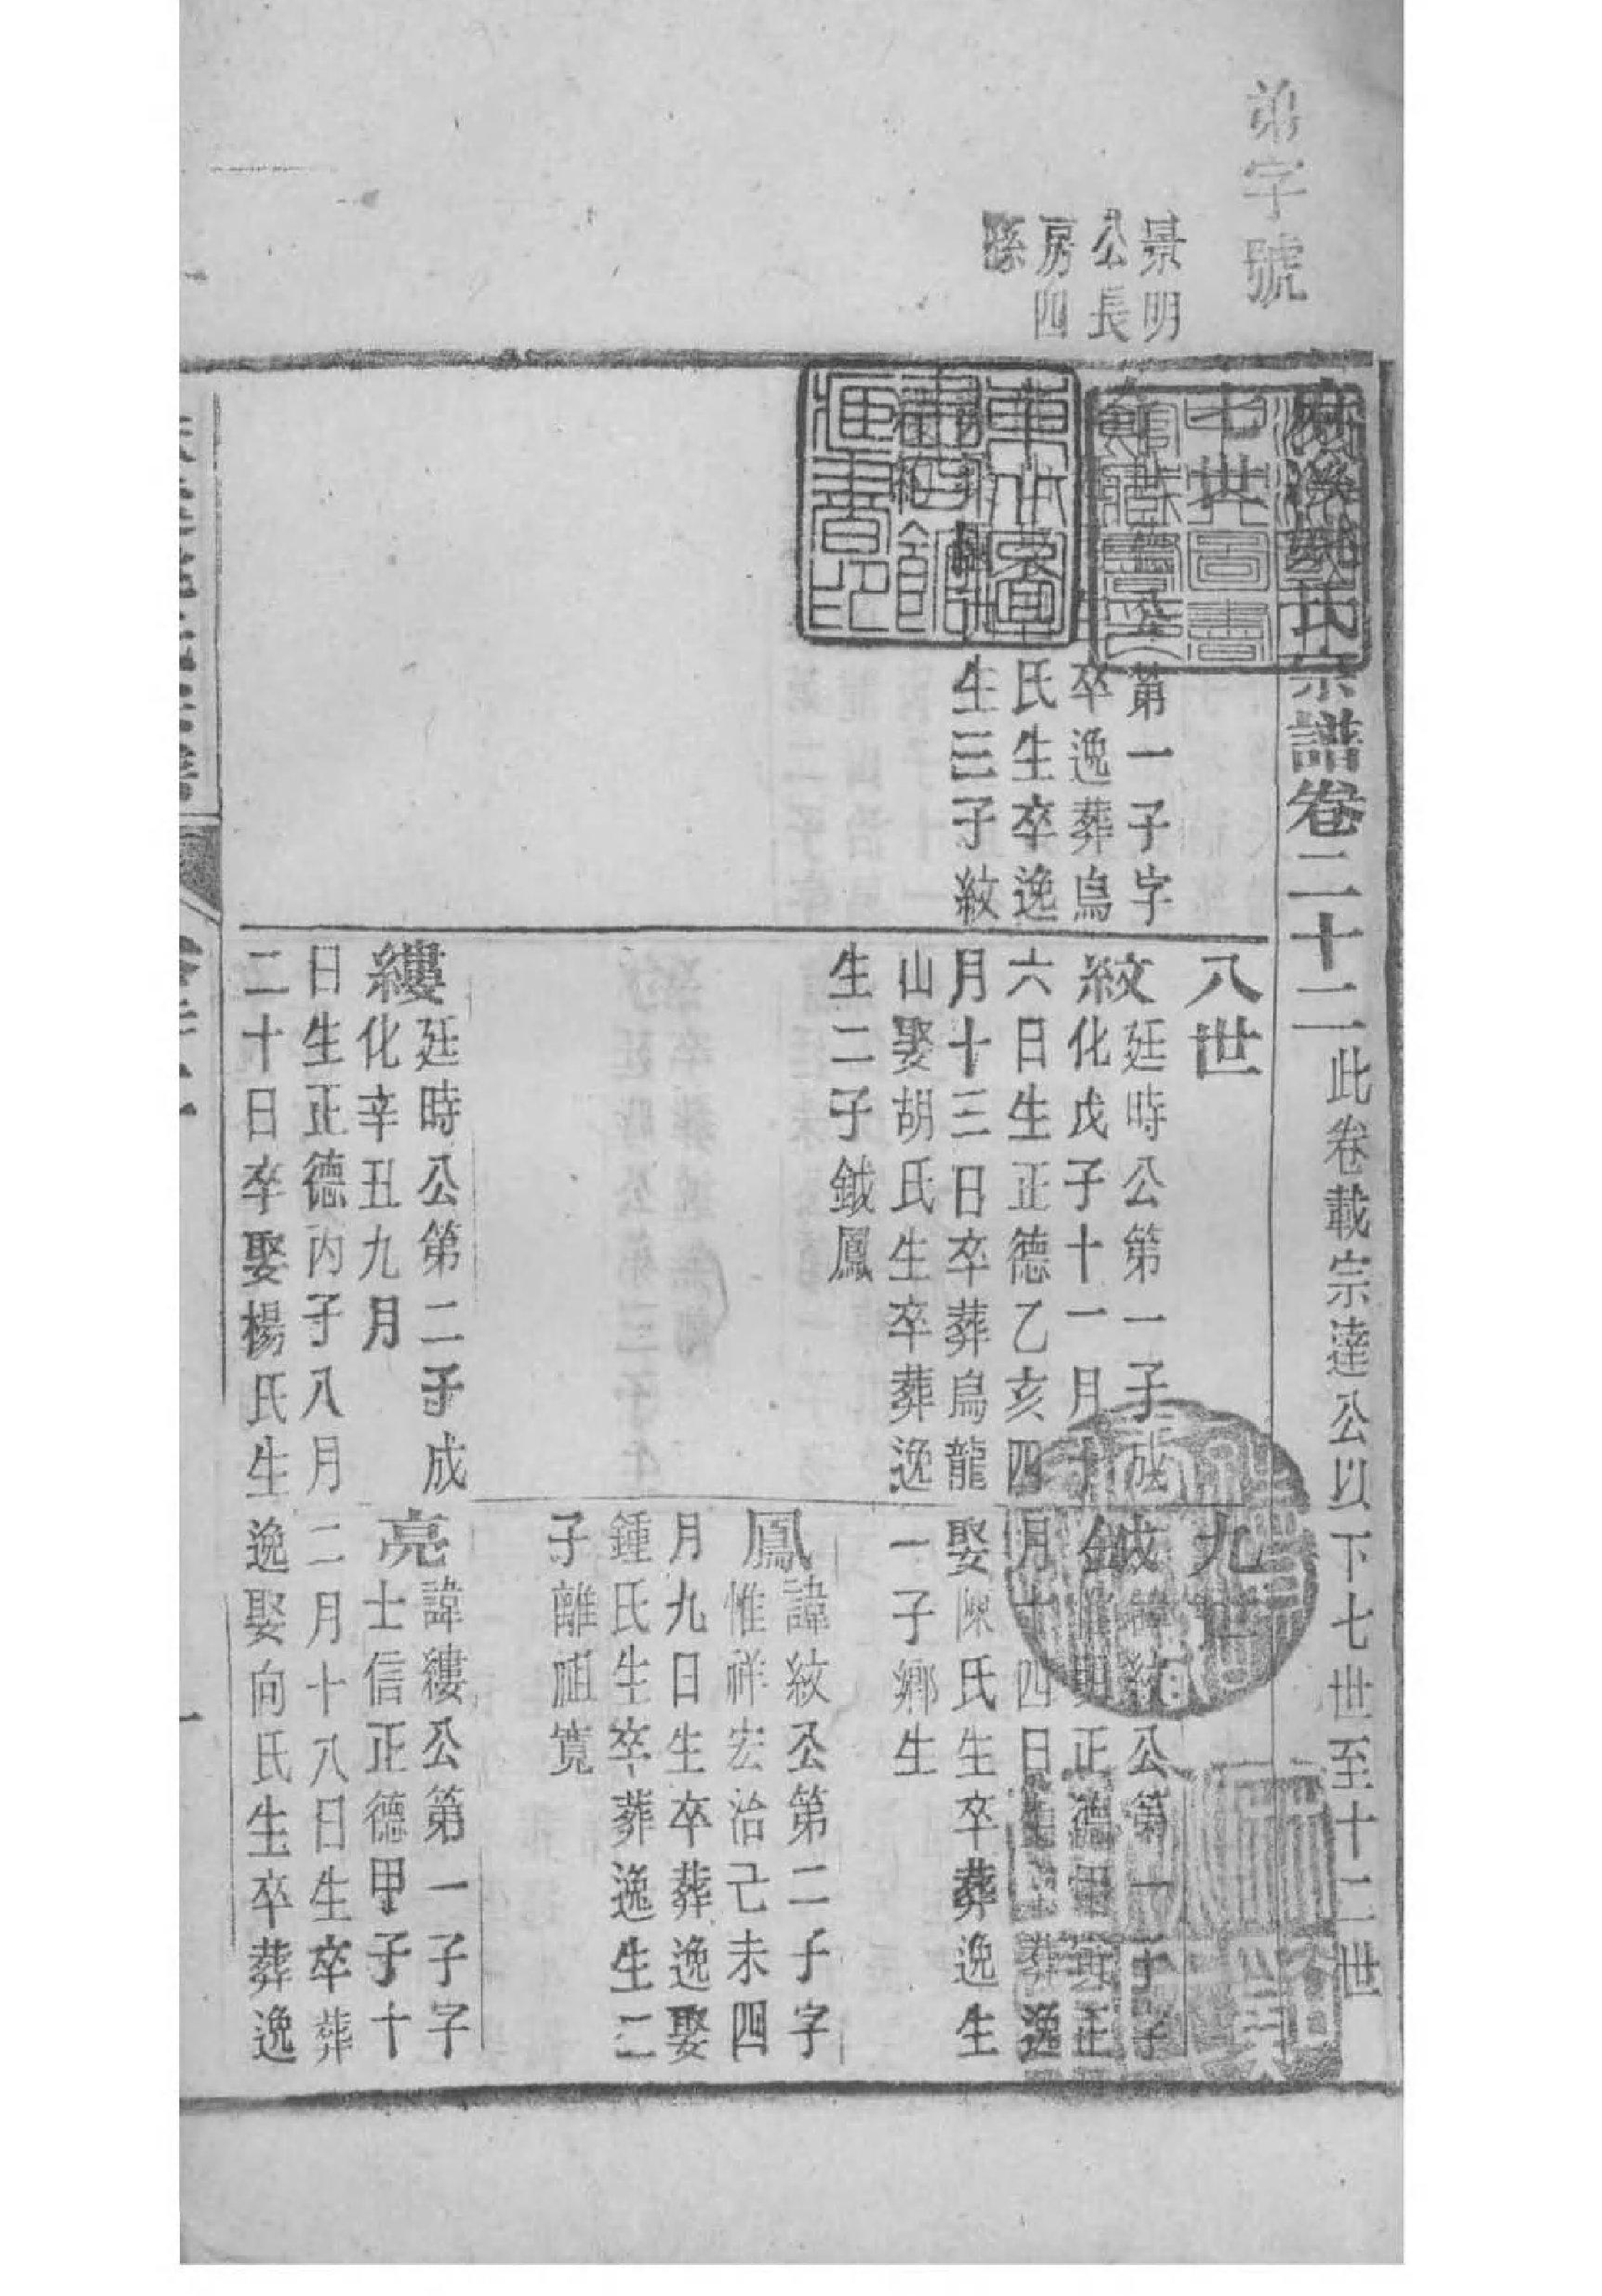 弟字號
景明
公長
房四
縣
麻溪姚氏宗譜卷二十二 此卷載宗達公以下七世至十二世
七世
第一子字
卒逸葬烏
氏生卒逸
生三子紋
八世
紋 廷時公第一子成
化戊子十一月十
六日生正德乙亥四
月十三日卒葬烏龍
山娶胡氏生卒葬逸
生二子鉞鳳
縷 廷時公第二子成
化辛丑九月
日生正德丙子八月
二十日卒娶楊氏生
九世
鉞 諱紋公第一子字
正德
月十四日 葬逸
娶陳氏生卒葬逸生
一子鄉生
鳳 諱紋公第二子字
惟祥宏治己未四
月九日生卒葬逸娶
鍾氏生卒葬逸生二
子離祖寬
亮 諱縷公第一子字
士信正德甲子十
二月十八日生卒葬
逸娶向氏生卒葬逸